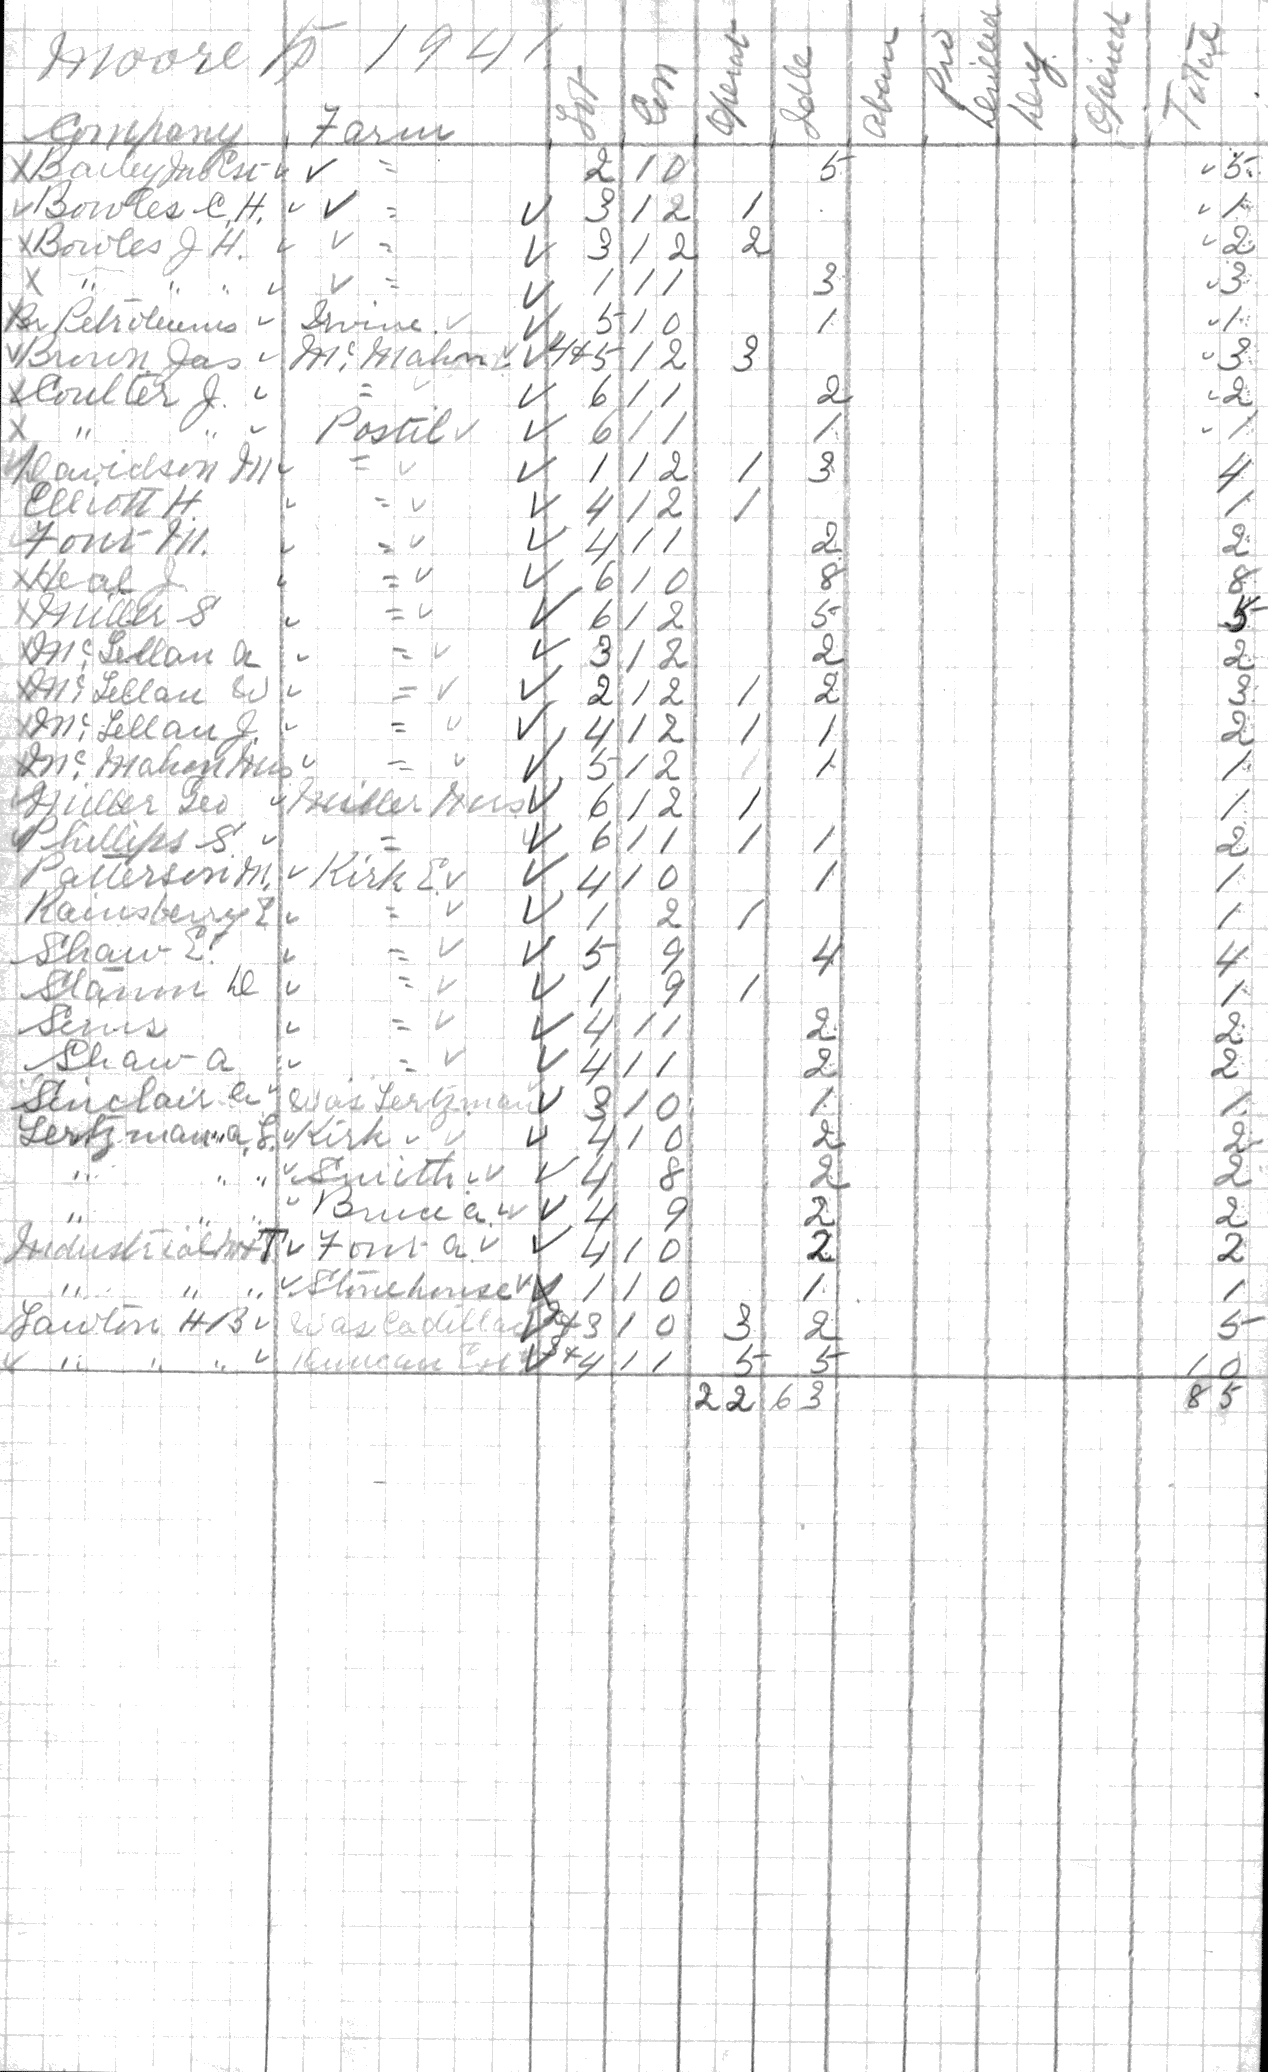 Moore Tp 1941
Company Farm Lot Con Operat Idle Aban Pro Drilled Dry Opened Total
X Bailey Jno Est " ✓ = 2 10 5 ✓ 5
✓ Bowles C.H. ✓ ✓ = ✓ 3 12 1 ✓ 1
X Bowles J H. ✓ ✓ = ✓ 3 12 2 ✓ 2
X " " " ✓ ✓ = ✓ 1 11 3 ✓ 3
X Br Petroleums ✓ Irvine ✓ ✓ 5 10 1 ✓ 1
✓ Brown Jas ✓ Mc Mahon ✓ ✓ 4+5 12 3 ✓ 3
X Coulter J. ✓ = ✓ ✓ 6 11 2 ✓ 2
X " " ✓ Postil ✓ ✓ 6 11 1 ✓ 1
Davidson M ✓ = ✓ ✓ 1 12 1 3 4
Elliott H. ✓ = ✓ ✓ 4 12 1 1
Font M. ✓ = ✓ ✓ 4 11 2 2
X Heal J. ✓ = ✓ ✓ 6 10 8 8
X Miller S ✓ = ✓ ✓ 6 12 5 5
X Mc Lellan A ✓ = ✓ ✓ 3 12 2 2
X Mc Lellan W ✓ = ✓ ✓ 2 12 1 2 3
X Mc Lellan J. ✓ = ✓ ✓ 4 12 1 1 2
X Mc Mahon Mrs ✓ = ✓ ✓ 5 12 1 1
✓ Miller Geo ✓ Miller Mrs ✓ 6 12 1 1
✓ Phillips S ✓ = ✓ 6 11 1 1 2
Patterson M. ✓ Kirk E ✓ ✓ 4 10 1 1
Rainsberry E ✓ = ✓ ✓ 1 2 1 1
Shaw E. ✓ = ✓ ✓ 5 9 4 4
Stamm D ✓ = ✓ ✓ 1 9 1 1
Sims ✓ = ✓ ✓ 4 11 2 2
Shaw A ✓ = ✓ ✓ 4 11 2 2
Sinclair A ✓ Was Lertzman ✓ 3 10 1 1
Lertzman A.L. ✓ Kirk ✓ ✓ ✓ 4 10 2 2
" " " ✓ Smith ✓ ✓ ✓ 4 8 2 2
" " " ✓ Bruce A. ✓ ✓ 4 9 2 2
Industrial M+T ✓ Font A ✓ ✓ 4 10 2 2
" " " ✓ Stonehouse ✓ ✓ 1 10 1 1
Lawton H B ✓ Was Cadillac ✓ 2+3 10 3 2 5
✓ " " " ✓ Duncan Est ✓ 3+4 11 5 5 10
22 63 85